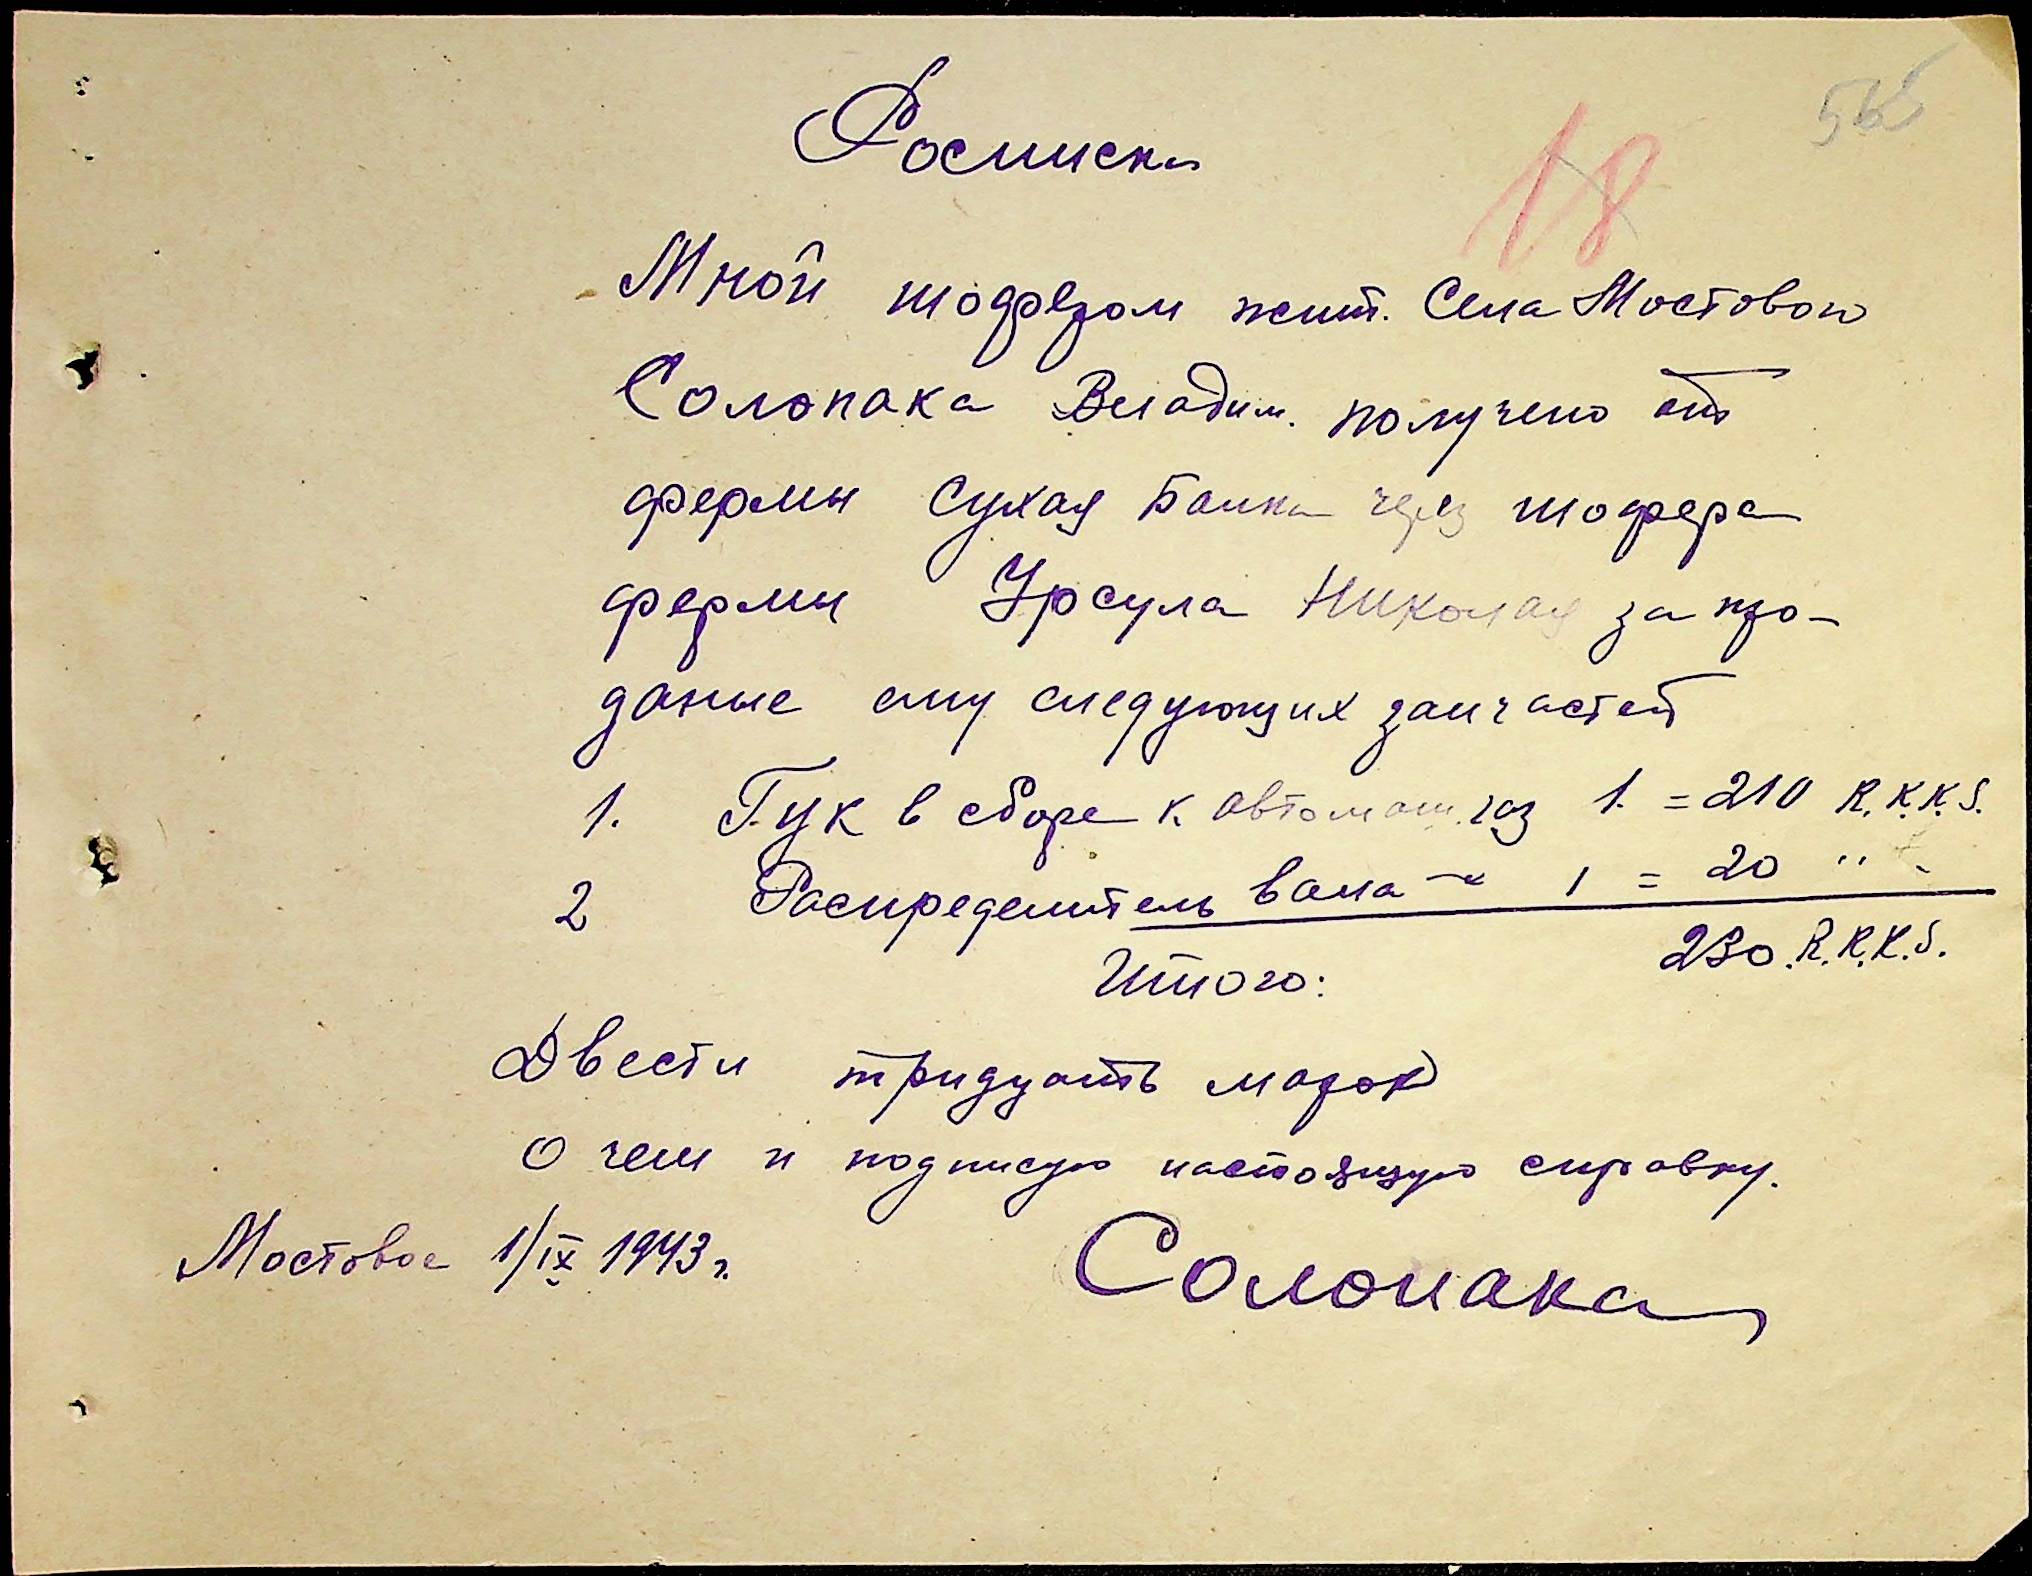 18
Росписка
Мной шофером жит. Села Мостового
Солопака Владим. получено от
фермы Сухая Балка через шофера
фермы Урсула Николая за про-
даные ему следующих запчастей
1. Гук в сборе к автомаш. газ 1. = 210 R.K.K.S.
2 Распределитель вала 1 = 20 " "
Итого: 230. R.K.K.S.
Двести тридцать марок
о чем и подписую настоящую справку.
Мостовое 1/IX 1943 г.
Солопака